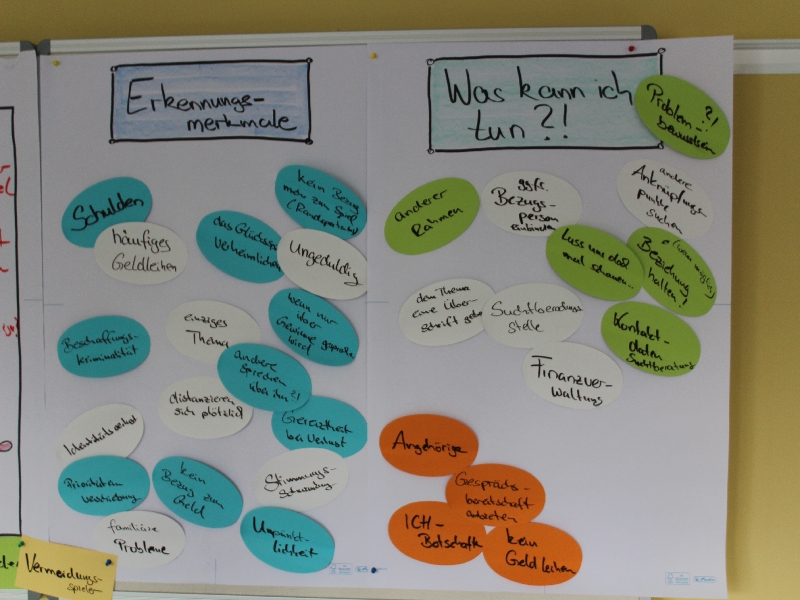 Erkennungs-
merkmale
Schulden
häufiges
Geldleihen
kein Bezug
mehr zum Spiel
(Randsportarten)
das Glücksspiel
verheimlichen
Ungeduldig
Beschaffungs-
kriminalität
einziges
Thema
wenn nur
über
Gewinne gesprochen
wird
andere
sprechen
über ihn?!
distanzieren
sich plötzlich
Gereiztheit
bei Verlust
Identitätsverlust
Prioritäten
verschiebung
kein
Bezug zum
Geld
Stimmungs-
Schwankung
familiäre
Probleme
Unpünkt-
lichkeit
Vermeidungs-
spieler
Was kann ich
tun?!
Problem-?!
bewusstsein
anderer
Rahmen
ggfs.
Bezugs-
person
einbinden
andere
Anknüpfungs-
punkte
suchen
Lass uns doch
mal schauen...
Beziehung
halten!
dem Thema
eine Über-
schrift geben
Suchtberatungs
stelle
Kontakt-
daten
Suchtberatung
Finanzver-
waltung
Angehörige
Gesprächs-
bereitschaft
anbieten
ICH-
Botschaft
kein
Geld leihen